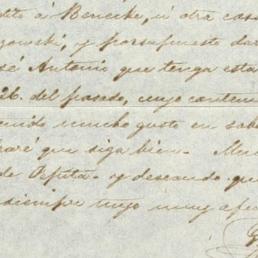 á Benecke, ú otra casa
y por supuesto dar
sé Antonio que tenga esta
26. del pasado, cuyo conten
mucho gusto en sab
que siga bien.
de Pepita y deseando que
siempre suyo muy afec